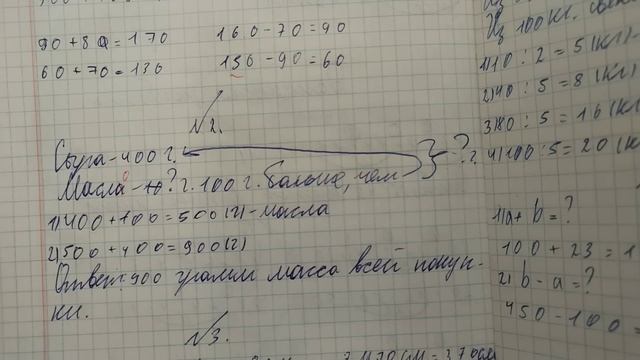 90 + 80 = 170
160 - 70 = 90
60 + 70 = 130
150 - 90 = 60
№2.
Сыра - 400 г.
Масла - ? г. 100 г. больше, чем
} ? г.
1) 400 + 100 = 500 (г) - масла
2) 500 + 400 = 900 (г)
Ответ: 900 грамм масса всей покуп-
ки.
№3.
Из 100 кг.
1) 10 : 2 = 5 (кг) -
2) 40 : 5 = 8 (кг)
3) 80 : 5 = 16 (кг
4) 100 : 5 = 20 (к
1) a + b = ?
100 + 23 = 1
2) b - a = ?
450 - 100 =